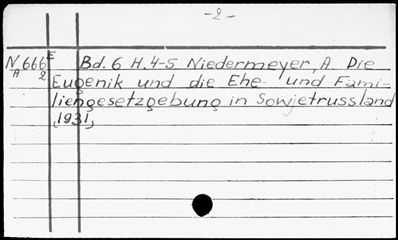 -2-
N 666 E Bd. 6 H. 4-5 Niedermeyer, A. Die
A 2 Eugenik und die Ehe- und Fami-
liengesetzgebung in Sowjetrussland
(1931)